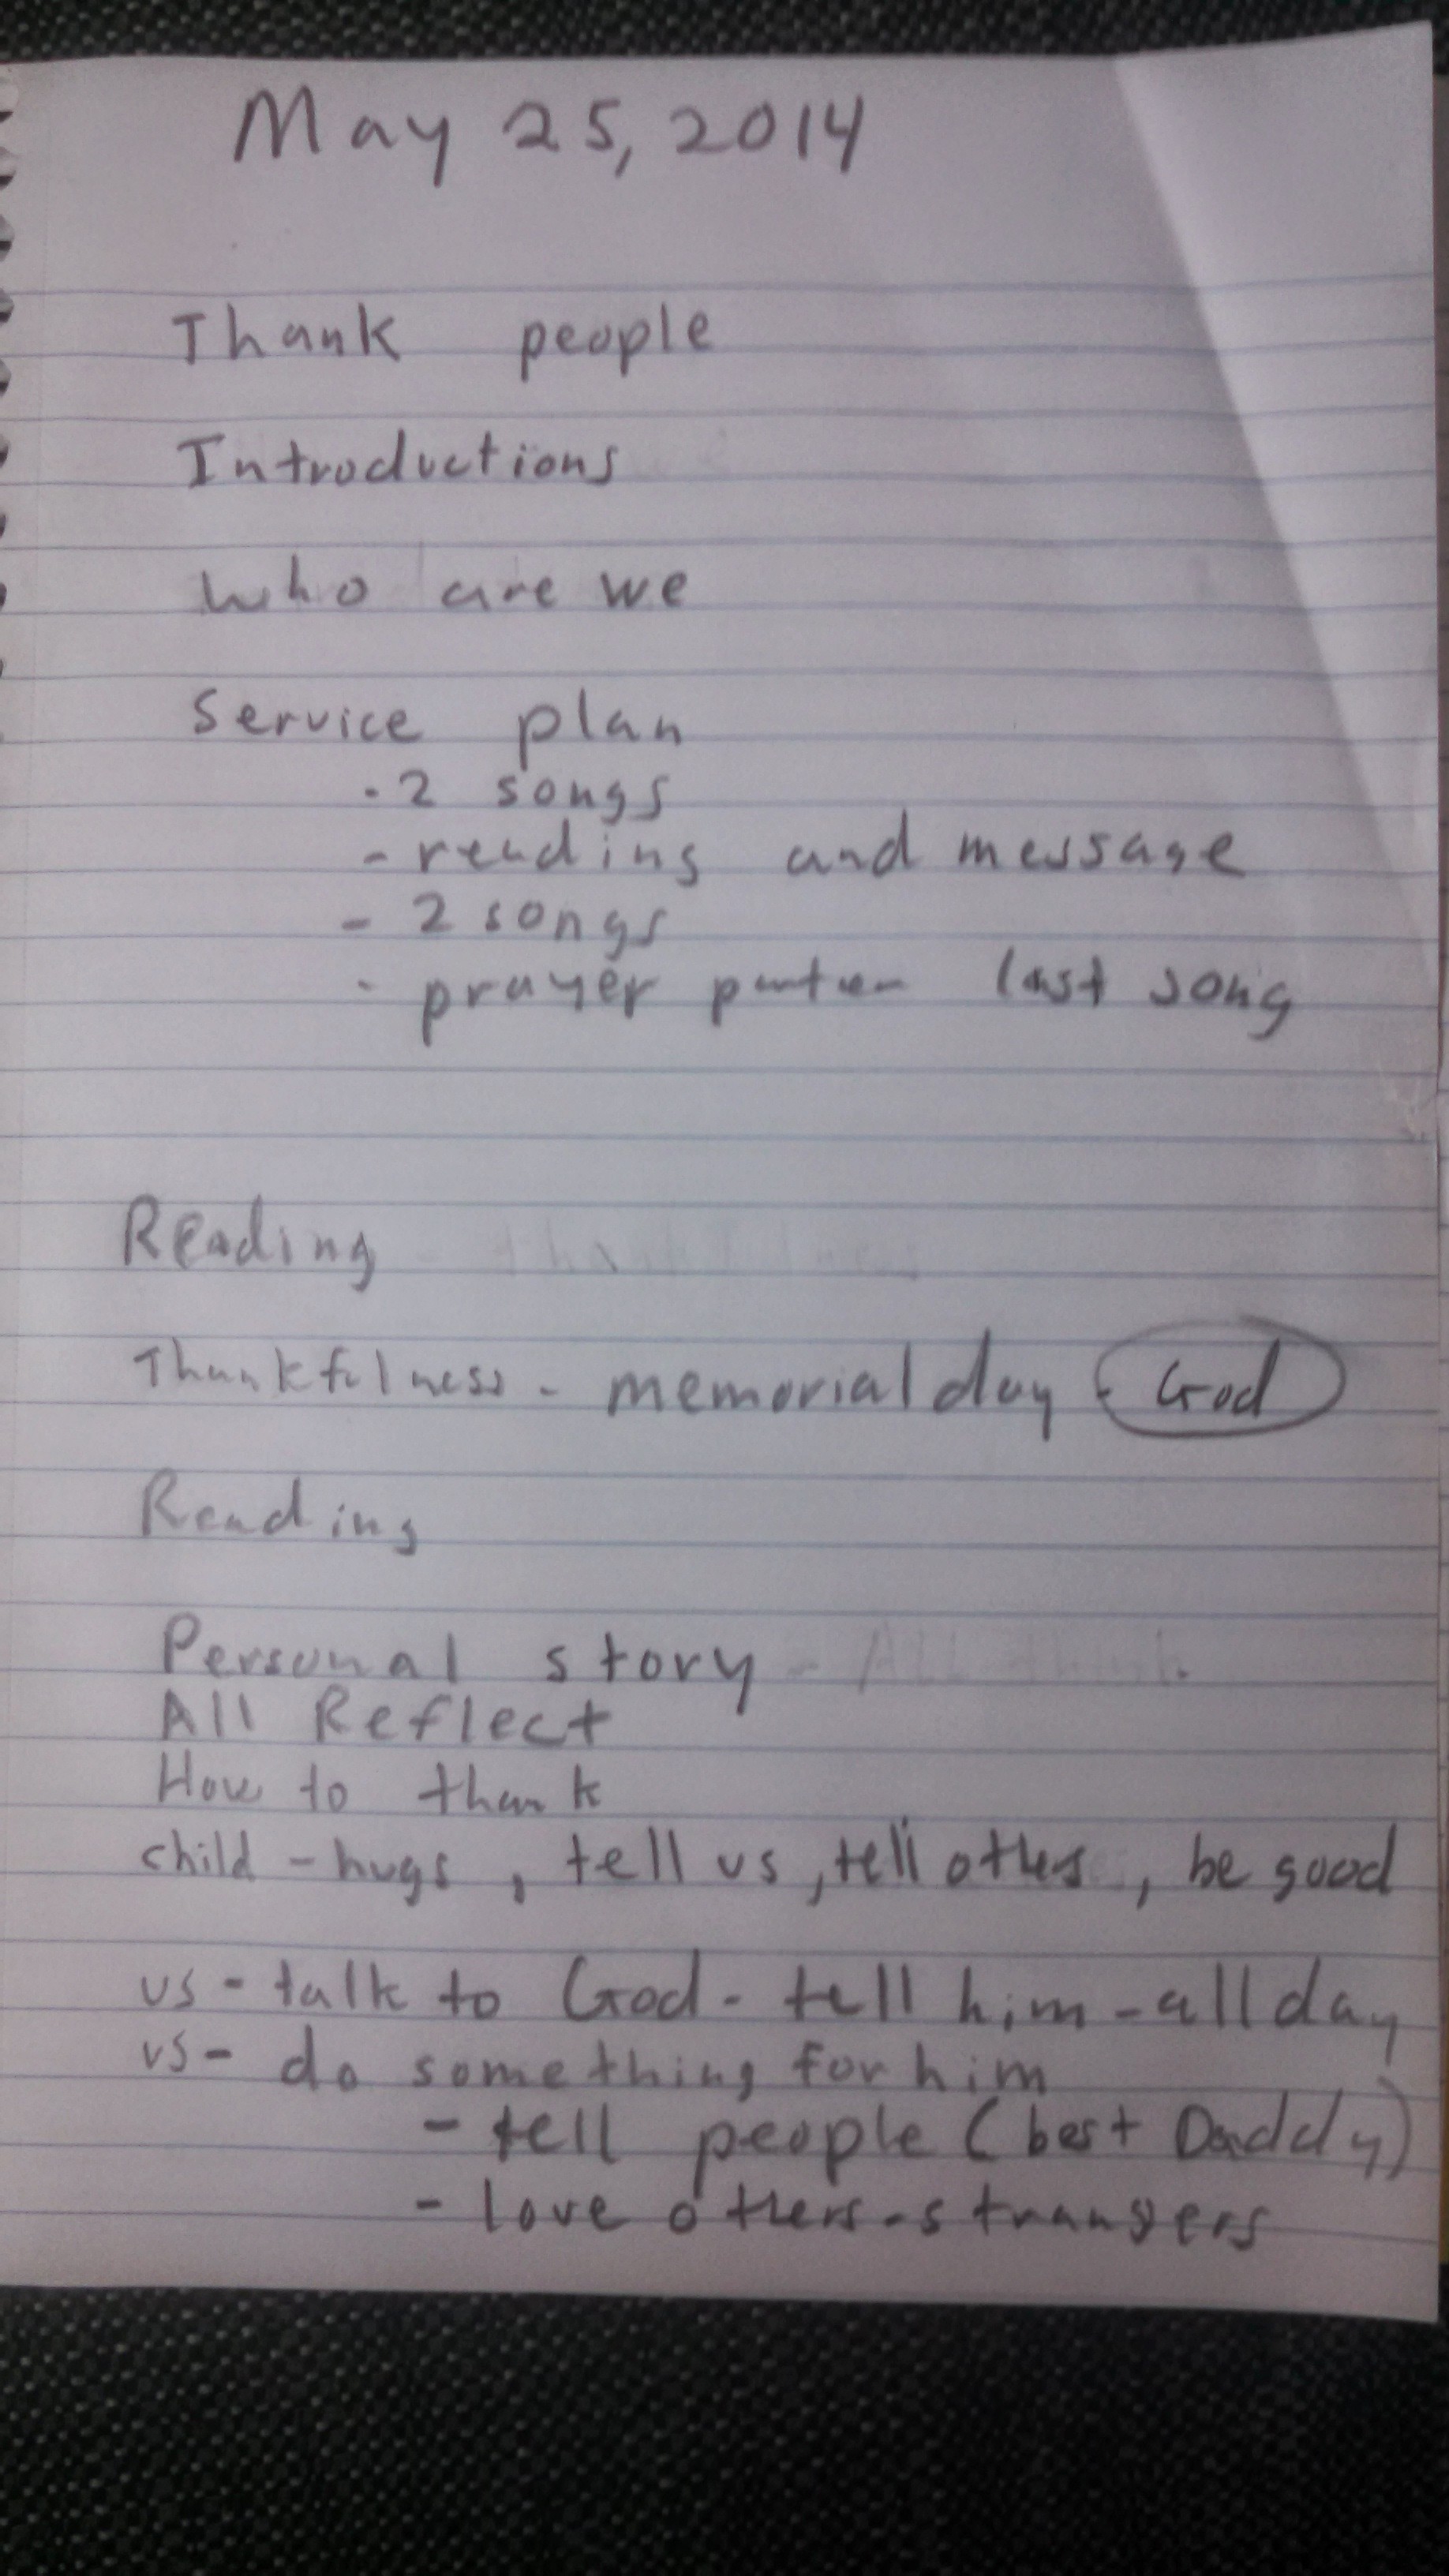 May 25, 2014
Thank people
Introductions
who are we
Service plan
· 2 songs
- reading and message
- 2 songs
- prayer last song
Reading
Thankfulness - memorial day - God
Reading
Personal story -
All Reflect
How to thank
child - hugs, tell us, tell others, be good
us - talk to God - tell him - all day
us - do something for him
- tell people (best Daddy)
- love others - strangers